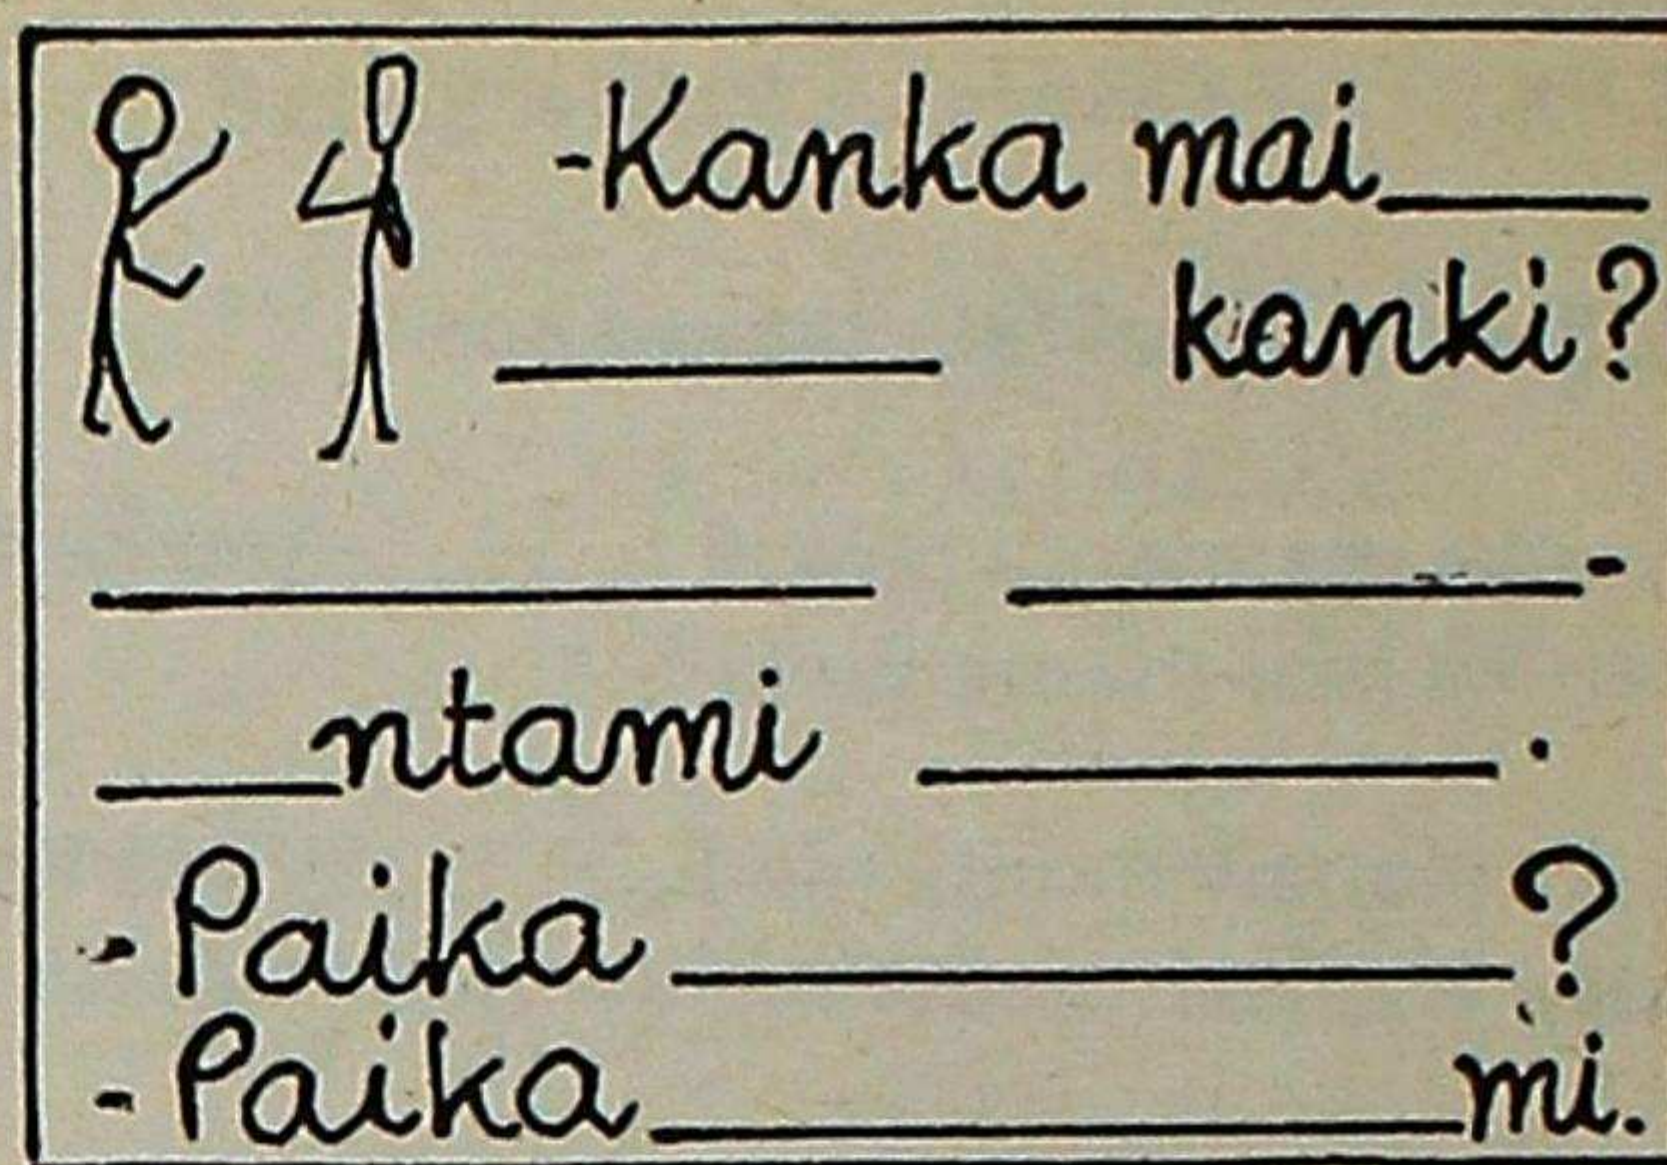 -Kanka mai____
______ kanki?
__________ ________-
____ntami ________.
-Paika __________?
-Paika__________mi.